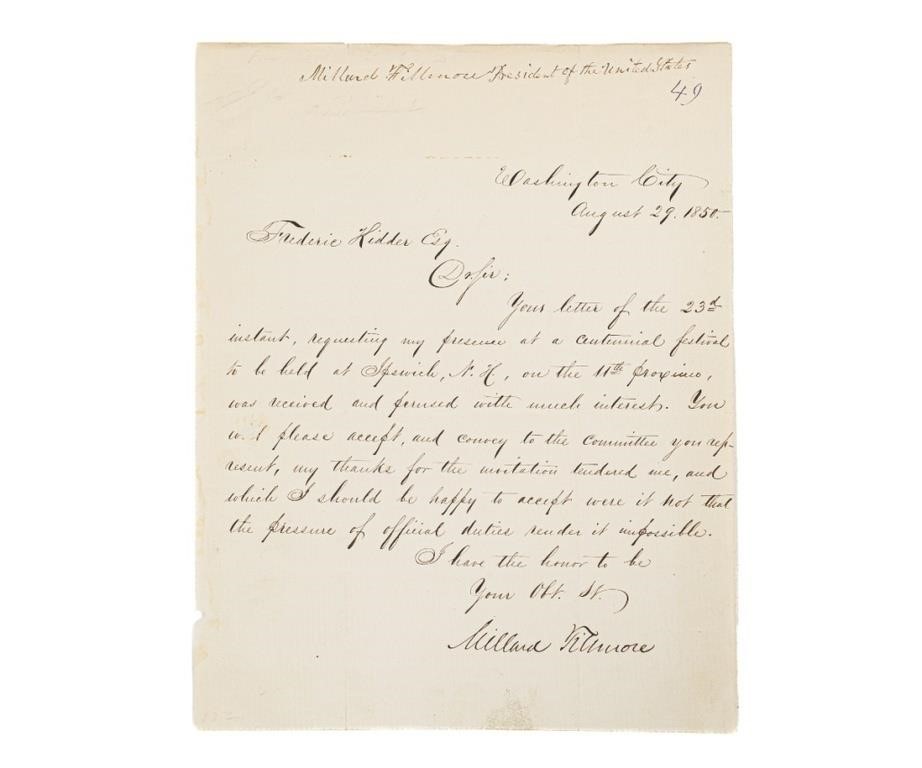 Millard Fillmore President of the United States
49
Washington City
August 29. 1850.
Frederic Kidder Esq.
Dr. Sir:
Your letter of the 23d
instant, requesting my presence at a centennial festival
to be held at Ipswich, N. H., on the 11th proximo,
was received and perused with much interest. You
will please accept, and convey to the committee you rep-
resent, my thanks for the invitation tendered me, and
which I should be happy to accept were it not that
the pressure of official duties render it impossible.
I have the honor to be
Your Obt. St.
Millard Fillmore